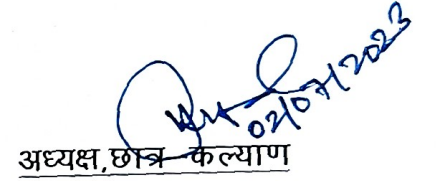 02/07/2023
अध्यक्ष, छात्र कल्याण